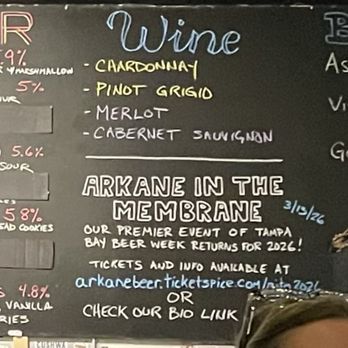 R
Wine
.9%
MARSHMALLOW
5%
OUR
5.6%
SOUR
5.8%
EAD COOKIES
4.8%
VANILLA
RIES
- CHARDONNAY
- PINOT GRIGIO
- MERLOT
- CABERNET SAUVIGNON
ARKANE IN THE
MEMBRANE 3/13/26
OUR PREMIER EVENT OF TAMPA
BAY BEER WEEK RETURNS FOR 2026!
TICKETS AND INFO AVAILABLE AT
arkanebeer.ticketspice.com/aitm2026
OR
CHECK OUR BIO LINK
As
Vi